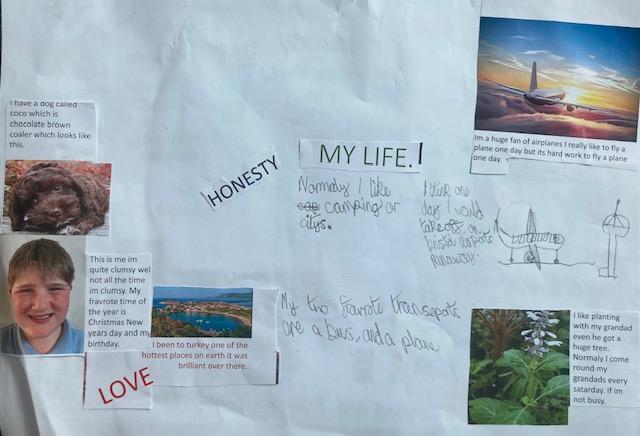 I have a dog called
coco which is
chocolate brown
coaler which looks like
this.
HONESTY
MY LIFE.
Im a huge fan of airplanes I really like to fly a
plane one day but its hard work to fly a plane
one day.
Normaly I like
camping or
citys.
I think one
day I would
takeoff on
bristol airports
runaway.
This is me im
quite clumsy wel
not all the time
im clumsy. My
fravrote time of
the year is
Christmas New
years day and my
birthday.
LOVE
I been to turkey one of the
hottest places on earth it was
brilliant over there.
My two favrote transepots
are a bus, and a plane
I like planting
with my grandad
even he got a
huge tree.
Normaly I come
round my
grandads every
satarday. If im
not busy.